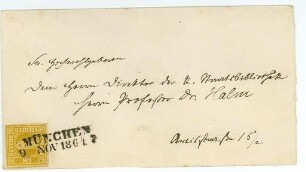 Sr. Hochwohlgeboren
Dem Herrn Direktor der K. Staatsbibliothek
Herrn Professor Dr. Halm
15/2
MÜNCHEN
9 NOV 1861